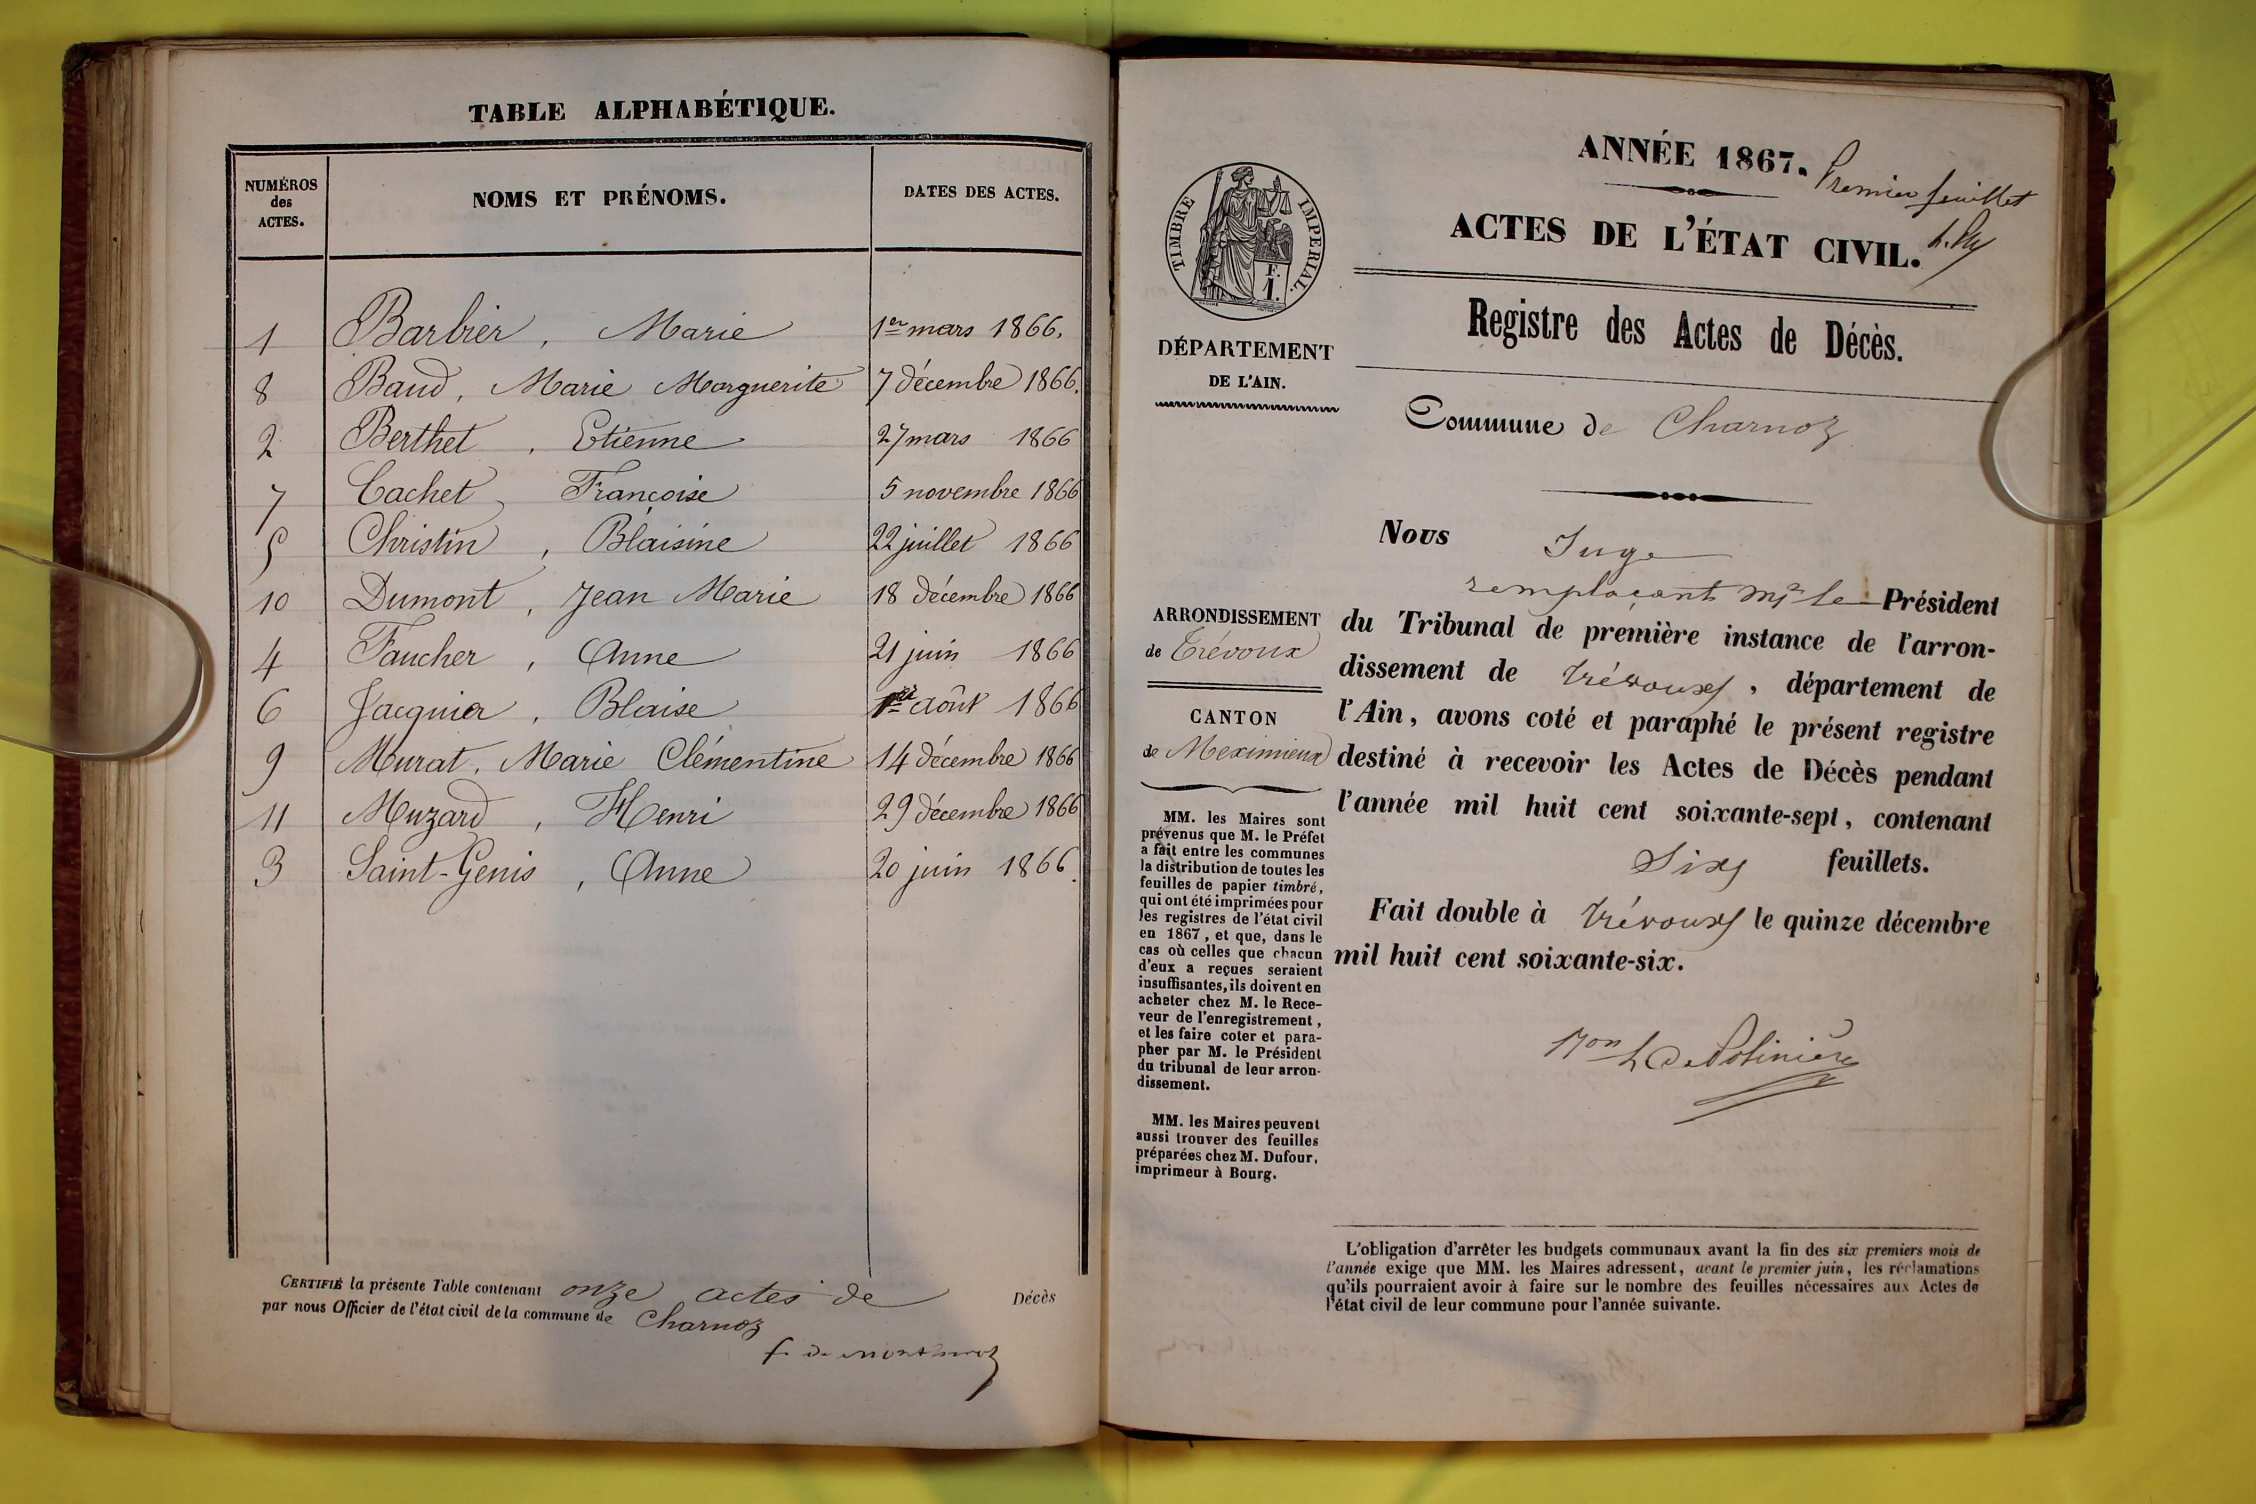 TABLE ALPHABÉTIQUE.
NUMÉROS
des
ACTES.
NOMS ET PRÉNOMS.
DATES DES ACTES.
1 Barbier, Marie 1er mars 1866.
8 Baud, Marie Marguerite 7 décembre 1866.
2 Berthet, Etienne 27 mars 1866
7 Cachet, Françoise 5 novembre 1866
5 Christin, Blaisine 22 juillet 1866
10 Dumont, Jean Marie 18 décembre 1866
4 Faucher, Anne 21 juin 1866
6 Jacquier, Blaise 1er août 1866
9 Murat, Marie Clémentine 14 décembre 1866
11 Muzard, Henri 29 décembre 1866
3 Saint-Genis, Anne 20 juin 1866.
CERTIFIÉ la présente Table contenant onze actes de Décès
par nous Officier de l'état civil de la commune de Charnoz
ANNÉE 1867.
Premier feuillet
ACTES DE L'ÉTAT CIVIL.
TIMBRE IMPERIAL.
F.
1.
Registre des Actes de Décès.
DÉPARTEMENT
DE L'AIN.
Commune de Charnoz
ARRONDISSEMENT
de Trévoux
CANTON
de Meximieux
MM. les Maires sont
prévenus que M. le Préfet
a fait entre les communes
la distribution de toutes les
feuilles de papier timbré,
qui ont été imprimées pour
les registres de l'état civil
en 1867, et que, dans le
cas où celles que chacun
d'eux a reçues seraient
insuffisantes, ils doivent en
acheter chez M. le Rece-
veur de l'enregistrement,
et les faire coter et para-
pher par M. le Président
du tribunal de leur arron-
dissement.
MM. les Maires peuvent
aussi trouver des feuilles
préparées chez M. Dufour,
imprimeur à Bourg.
Nous Juge
remplaçant Mr le Président
du Tribunal de première instance de l'arron-
dissement de Trévoux, département de
l'Ain, avons coté et paraphé le présent registre
destiné à recevoir les Actes de Décès pendant
l'année mil huit cent soixante-sept, contenant
Six feuillets.
Fait double à Trévoux le quinze décembre
mil huit cent soixante-six.
L'obligation d'arrêter les budgets communaux avant la fin des six premiers mois de
l'année exige que MM. les Maires adressent, avant le premier juin, les réclamations
qu'ils pourraient avoir à faire sur le nombre des feuilles nécessaires aux Actes de
l'état civil de leur commune pour l'année suivante.